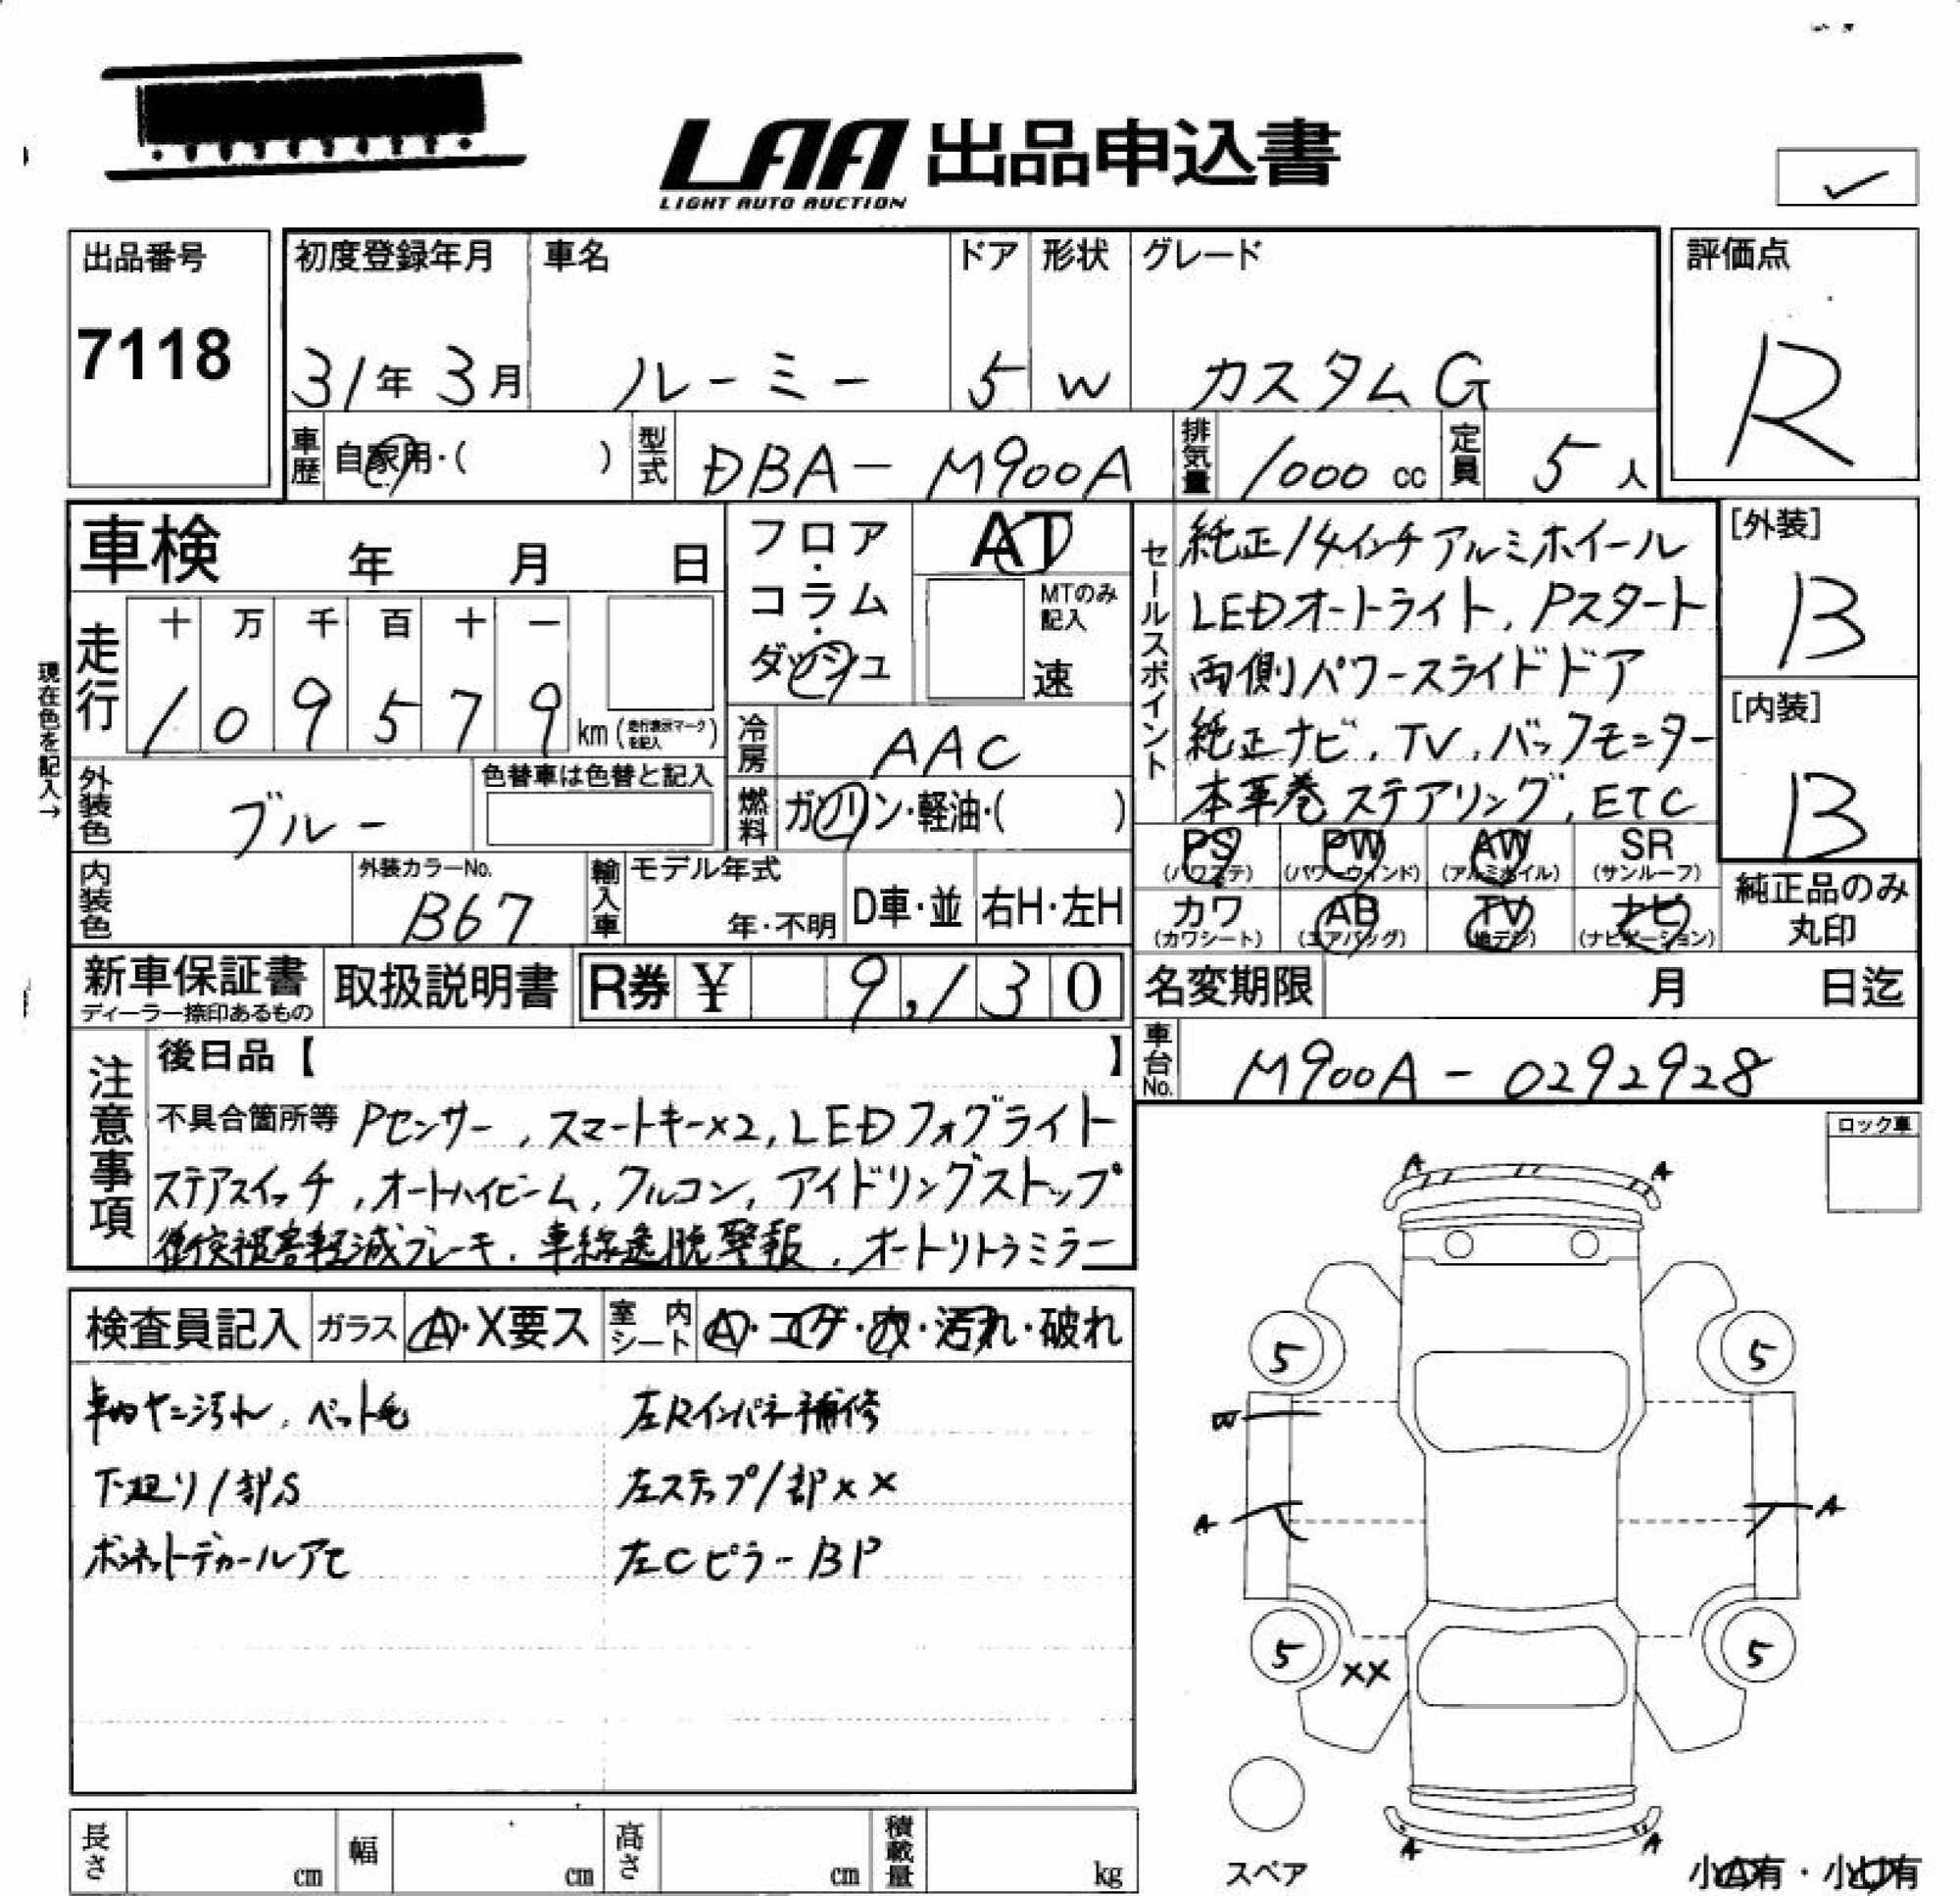 LAA 出品申込書
LIGHT AUTO AUCTION
出品番号
7118
初度登録年月
31年 3月
車名
ルーミー
ドア
5
形状
W
グレード
カスタムG
評価点
R
車歴
自家用・( )
型式
DBA-M900A
排気量
1000 cc
定員
5人
車検 年 月 日
走行
十 万 千 百 十 一
1 0 9 5 7 9 km (走行表示マークを記入)
現在色を記入→
外装色
ブルー
色替車は色替と記入
内装色
外装カラーNo.
B67
フロア・コラム・ダッシュ
AT
MTのみ記入
速
冷房
AAC
燃料
ガソリン・軽油・( )
輸入車
モデル年式
年・不明
D車・並
右H・左H
セールスポイント
純正14インチアルミホイール
LEDオートライト, Pスタート
両側パワースライドドア
純正ナビ, TV, バックモニター
本革巻ステアリング, ETC
[外装]
B
[内装]
B
PS
(パワステ)
PW
(パワーウィンド)
AW
(アルミホイル)
SR
(サンルーフ)
カワ
(カワシート)
AB
(エアバッグ)
TV
(地デジ)
ナビ
(ナビゲーション)
純正品のみ
丸印
新車保証書
ディーラー捺印あるもの
取扱説明書
R券 ¥ 9,130
名変期限 月 日迄
車台No.
M900A-0292928
注意事項
後日品【 】
不具合箇所等 Pセンサー, スマートキー×2, LEDフォグライト
ステアスイッチ, オートハイビーム, クルコン, アイドリングストップ
衝突被害軽減ブレーキ, 車線逸脱警報, オートリトラミラー
ロック車
検査員記入
ガラス
A・X要ス
室内シート
A・コゲ・穴・汚れ・破れ
車内ヤニ汚れ, ペット毛
左Rインパネ補修
下廻り1部S
左ステップ1部××
ボンネットデカールアセ
左Cピラー BP
A A
5 5
W
A A
5 5
XX
A A
スペア
長さ cm
幅 cm
高さ cm
積載量 kg